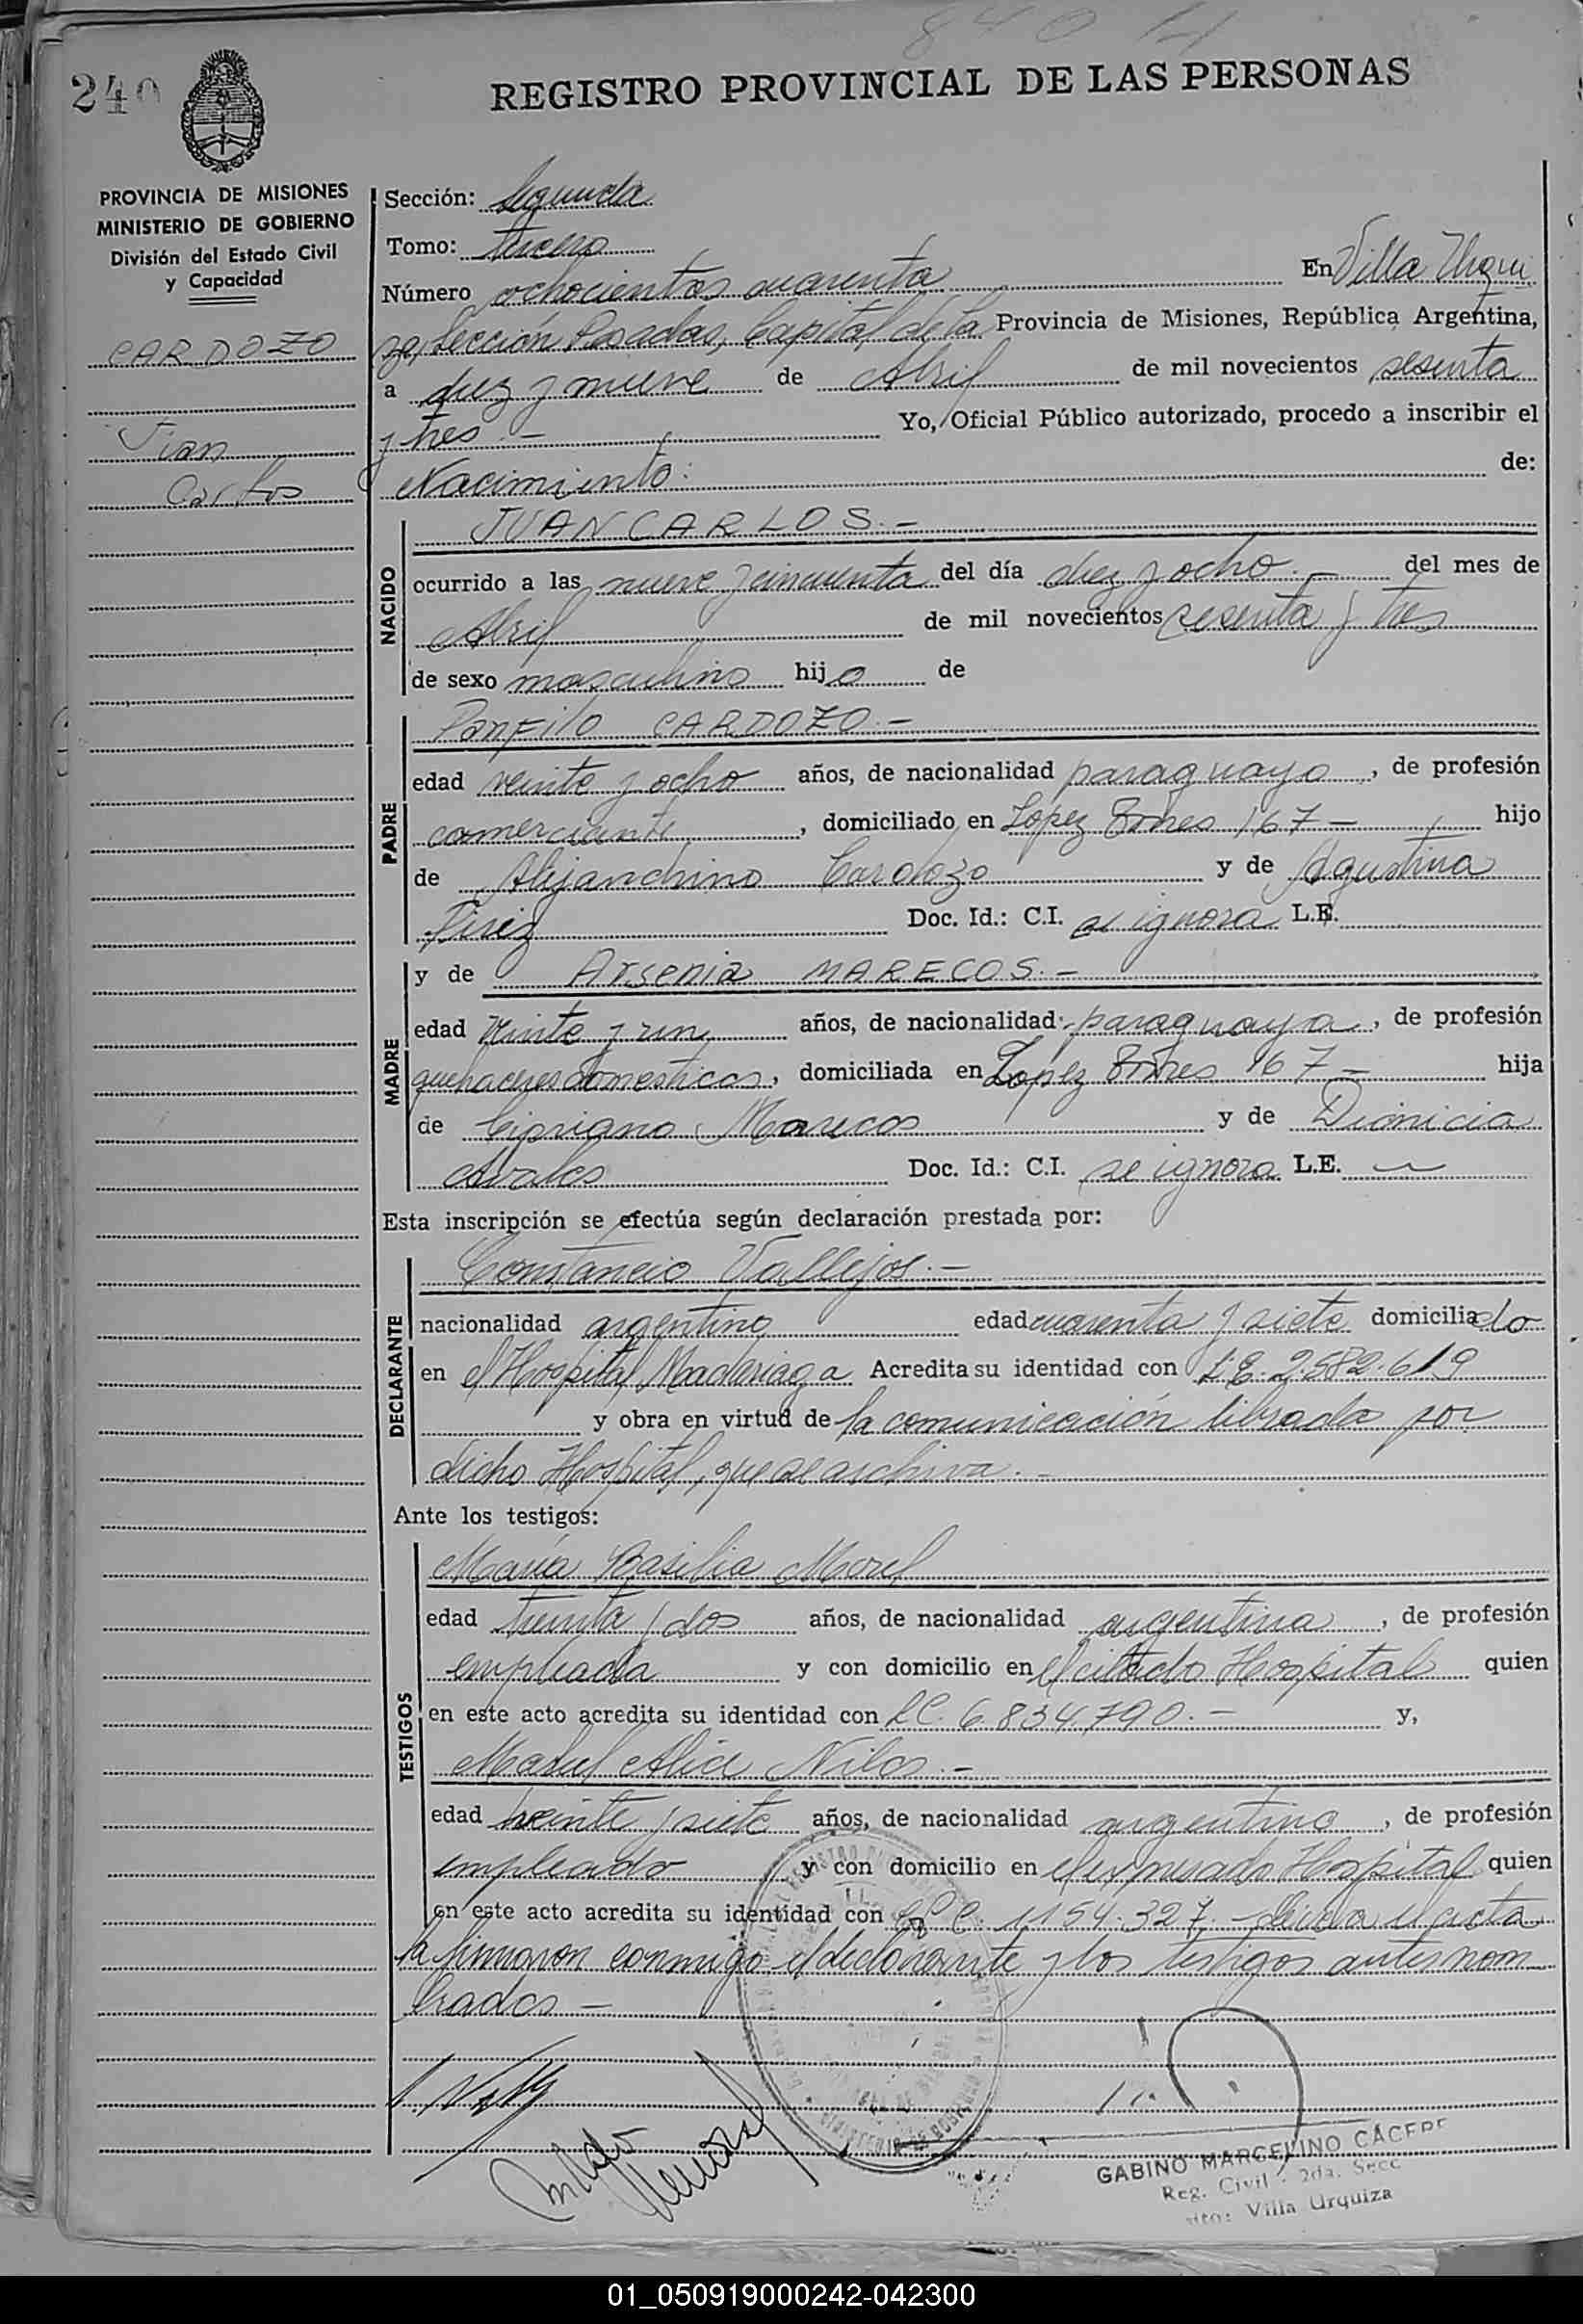 840
240
REGISTRO PROVINCIAL DE LAS PERSONAS
PROVINCIA DE MISIONES
MINISTERIO DE GOBIERNO
División del Estado Civil
y Capacidad
CARDOZO
Juan
Carlos
Sección: Segunda
Tomo: tercero
Número ochocientos cuarenta En Villa Urqui
za, Sección Posadas, Capital de la Provincia de Misiones, República Argentina,
a diez y nueve de Abril de mil novecientos sesenta
y tres.- Yo, Oficial Público autorizado, procedo a inscribir el
Nacimiento: de:
NACIDO
JUAN CARLOS.-
ocurrido a las nueve y cincuenta del día diez y ocho.- del mes de
Abril de mil novecientos sesenta y tres
de sexo masculino hijo de
PADRE
Panfilo CARDOZO.-
edad veinte y ocho años, de nacionalidad paraguayo, de profesión
comerciante, domiciliado en Lopez 167- hijo
de Alejandrino Cardozo y de Agustina
Doc. Id.: C.I. se ignora L.E.
MADRE
y de Arsenia MARECOS.-
edad veinte y un años, de nacionalidad paraguaya, de profesión
quehaceres domesticos, domiciliada en Lopez 167- hija
de Cipriano Marecos y de Dionicia
Avalos Doc. Id.: C.I. se ignora L.E.
Esta inscripción se efectúa según declaración prestada por:
DECLARANTE
Constancio Vallejos.-
nacionalidad argentino edad cuarenta y siete domiciliado
en el Hospital Madariaga Acredita su identidad con L.E. 2.582.619
y obra en virtud de la comunicación librada por
dicho Hospital, que se archiva.-
Ante los testigos:
TESTIGOS
María Basilia Morel
edad treinta y dos años, de nacionalidad argentina, de profesión
empleada y con domicilio en el citado Hospital quien
en este acto acredita su identidad con L.C. 6.834.790.- y,
Nilos.-
edad veinte y siete años, de nacionalidad argentino, de profesión
empleado y con domicilio en el expresado Hospital quien
en este acto acredita su identidad con 1154.327.- el acta
la firmaron conmigo el declarante y los testigos antes nom
brados-
GABINO MARCELINO CACERE
Reg. Civil - 2da. Secc
Villa Urquiza
01_050919000242-042300